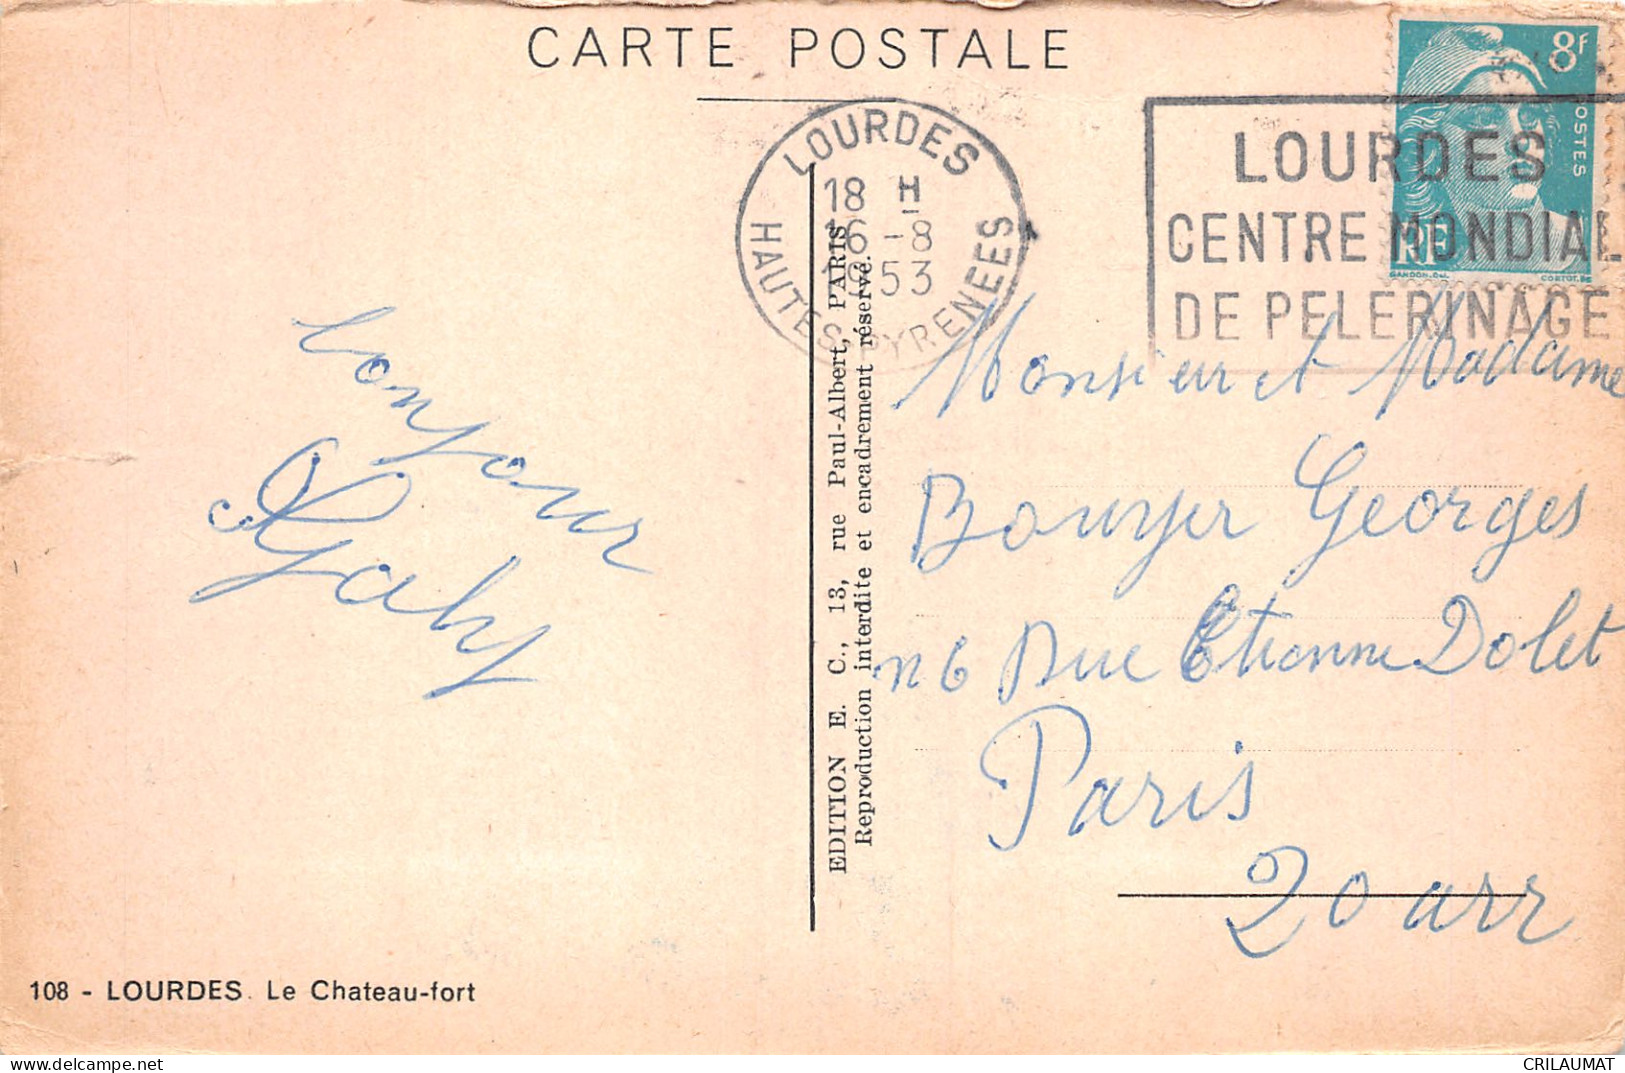 CARTE POSTALE
8F
POSTES
RF
GANDON.Del.
CORTOT.Sc
LOURDES
18 H
16 -8
1953
HAUTES-PYRENEES
LOURDES
CENTRE MONDIAL
DE PELERINAGE
bonjour
Gaby
EDITION E. C., 13, rue Paul-Albert, PARIS
Reproduction interdite et encadrement réservé.
Monsieur et Madame
Bouyer Georges
n 6 Rue Etienne Dolet
Paris
20 arr
108 - LOURDES. Le Chateau-fort
delcampe.net
CRILAUMAT